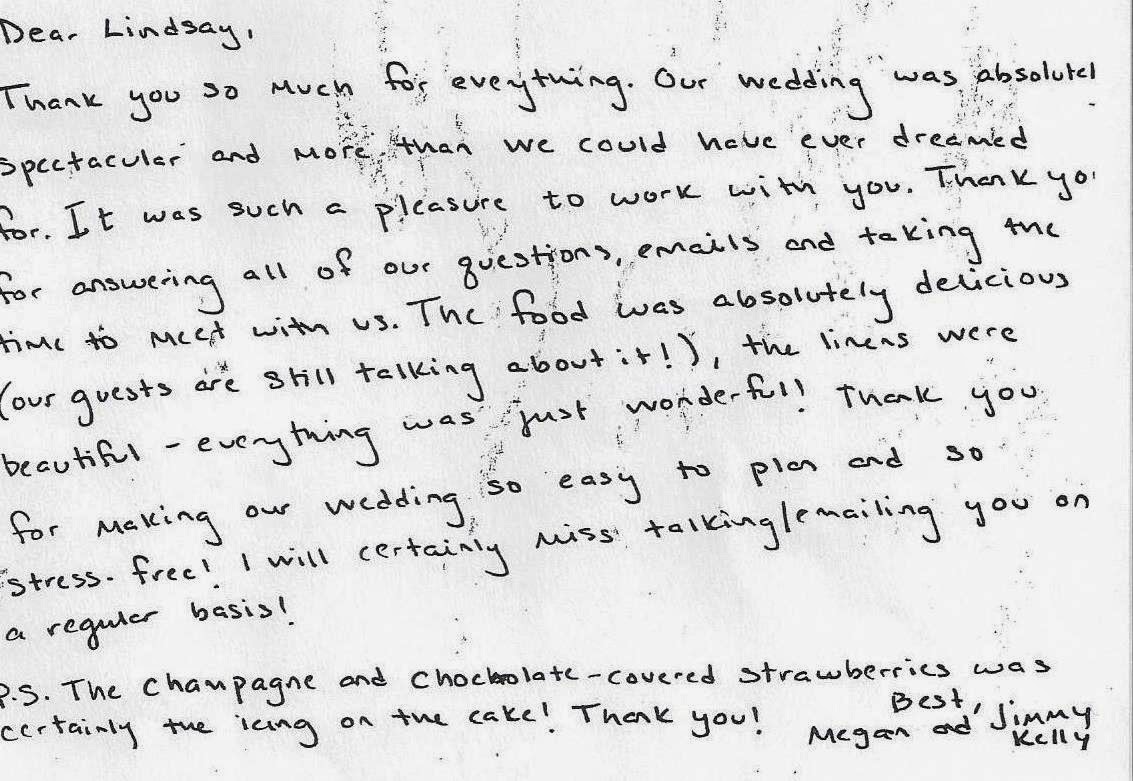 Dear Lindsay,
Thank you so much for everything. Our wedding was absolutel
spectacular and more than we could have ever dreamed
for. It was such a pleasure to work with you. Thank yo
for answering all of our questions, emails and taking the
time to meet with us. The food was absolutely delicious
(our guests are still talking about it!), the linens were
beautiful - everything was just wonderful! Thank you
for making our wedding so easy to plan and so
stress-free! I will certainly miss talking/emailing you on
a regular basis!
P.S. The champagne and chocolate-covered strawberries was
certainly the icing on the cake! Thank you!
Best,
Megan and Jimmy
Kelly